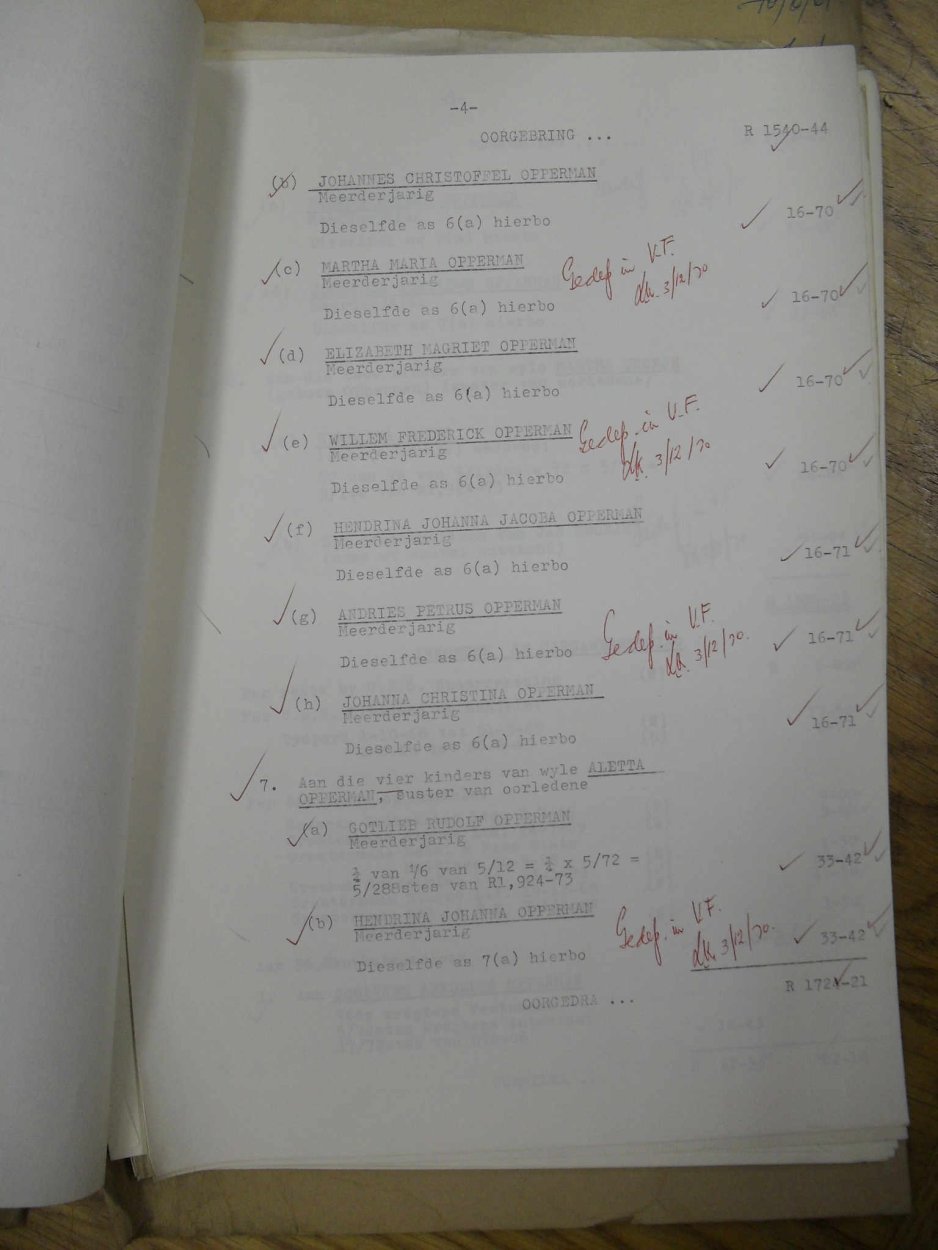 -4-
OORGEBRING ... R 1540-44
(b) JOHANNES CHRISTOFFEL OPPERMAN
Meerderjarig
Dieselfde as 6(a) hierbo 16-70
(c) MARTHA MARIA OPPERMAN Gedep in V.F.
Meerderjarig 3/12/70
Dieselfde as 6(a) hierbo 16-70
(d) ELIZABETH MAGRIET OPPERMAN
Meerderjarig
Dieselfde as 6(a) hierbo 16-70
(e) WILLEM FREDERICK OPPERMAN Gedep. in V.F.
Meerderjarig 3/12/70
Dieselfde as 6(a) hierbo 16-70
(f) HENDRINA JOHANNA JACOBA OPPERMAN
Meerderjarig
Dieselfde as 6(a) hierbo 16-71
(g) ANDRIES PETRUS OPPERMAN Gedep. in V.F.
Meerderjarig 3/12/70.
Dieselfde as 6(a) hierbo 16-71
(h) JOHANNA CHRISTINA OPPERMAN
Meerderjarig
Dieselfde as 6(a) hierbo 16-71
7. Aan die vier kinders van wyle ALETTA
OPPERMAN, suster van oorledene
(a) GOTLIEB RUDOLF OPPERMAN
Meerderjarig
¼ van 1/6 van 5/12 = ¼ x 5/72 =
5/288stes van R1,924-73 33-42
(b) HENDRINA JOHANNA OPPERMAN Gedep. in V.F.
Meerderjarig 3/12/70.
Dieselfde as 7(a) hierbo 33-42
OORGEDRA ... R 1724-21